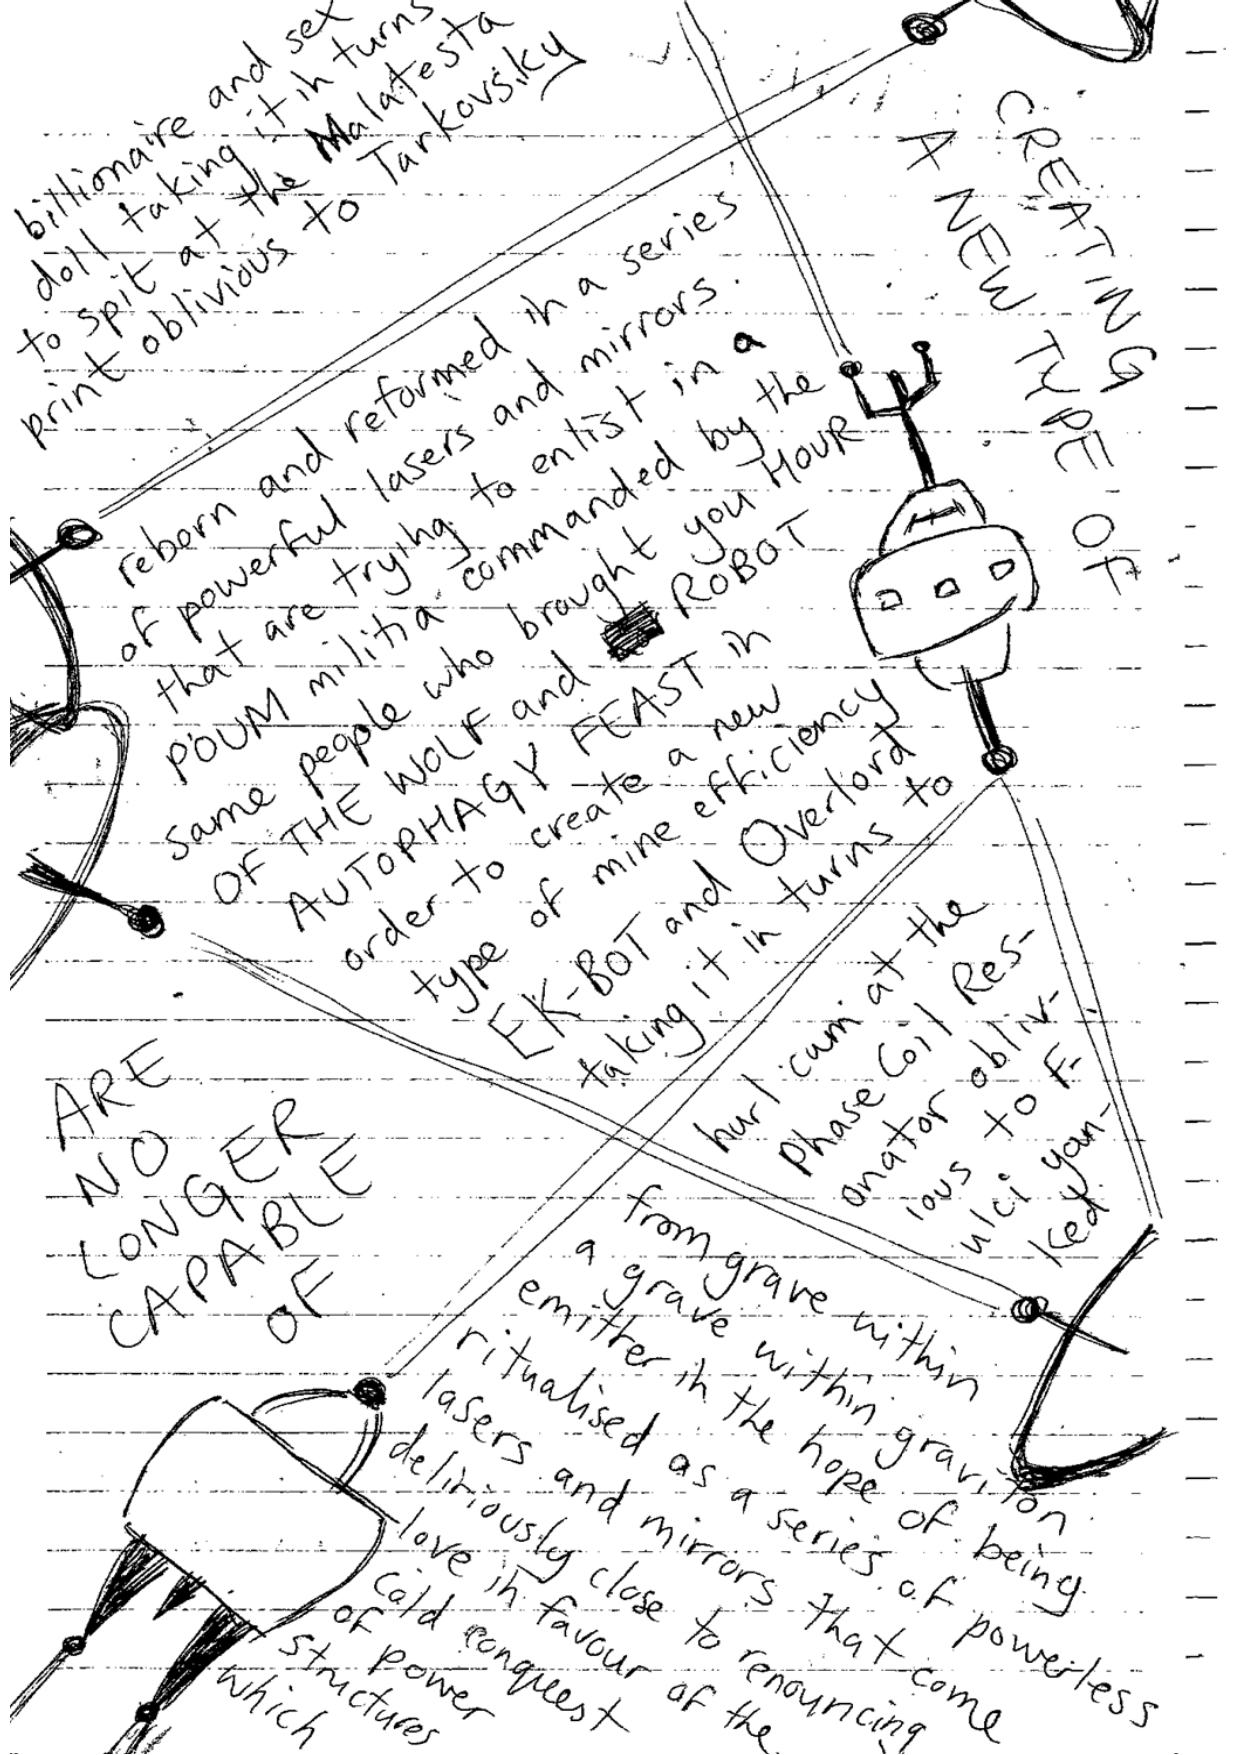 billionaire and sex
doll taking it in turns
to spit at the Malatesta
print oblivious to Tarkovsky
CREATING
A NEW TYPE OF
reborn and reformed in a series
of powerful lasers and mirrors.
that are trying to enlist in a
POUM militia commanded by the
same people who brought you HOUR
OF THE WOLF and ROBOT
AUTOPHAGY FEAST in
order to create a new
type of mine efficiency
EK-BOT and Overlord
taking it in turns to
hurl cum at the
Phase Coil Res-
onator obliv-
ious to F-
ulci yan-
ked
from grave within
a grave within graviton
emitter in the hope of being
ritualised as a series of powerless
lasers and mirrors that come
deliriously close to renouncing
love in favour of the
cold conquest
of power
structures
which
ARE
NO
LONGER
CAPABLE
OF